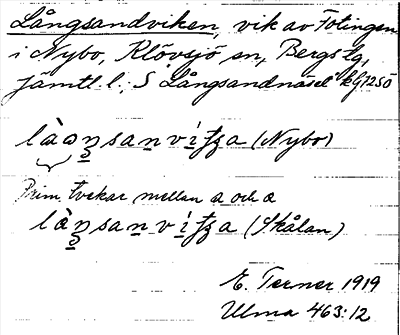 Långsandviken, vik av Fotingen
i Nybo, Klövsjö sn, Bergs tg,
Jämtl. l.; S Långsandnäset
làaŋsanvìʈʂa (Nybo)
Prim. tvekar mellan a och ɑ
làŋsanvìʈʂa (Skålan)
E. Terner 1919
Ulma 463:12